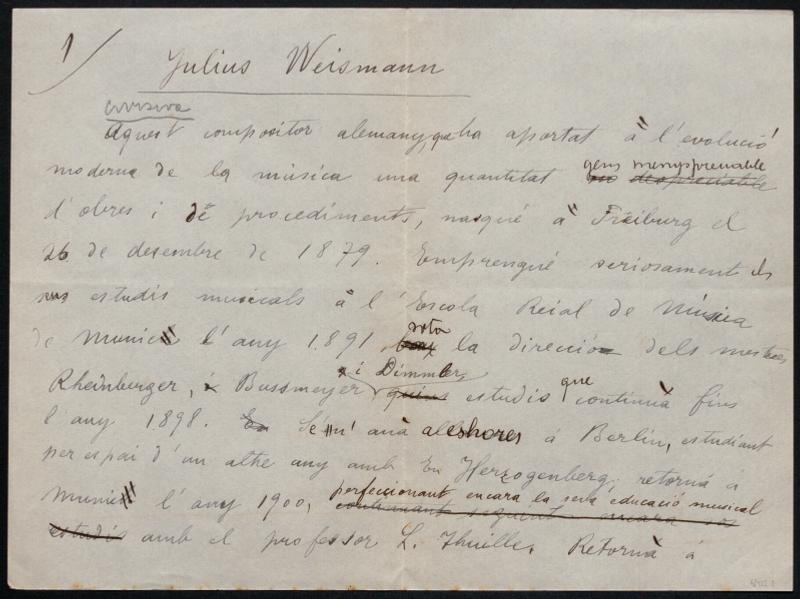 1/
Julius Weismann
cursiva
Aquest compositor alemany, que ha aportat a l'evolució
moderna de la música una quantitat gens menyspreuable
no despreciable
d'obres i de procediments, nasqué a Freiburg el
26 de desembre de 1879. Emprengué seriosament els
seus estudis musicals a l'Escola Reial de Música
de Munic l'any 1891 sota la direcció dels mestres
Rheinberger, i Bussmeyer i Dimmler, quins estudis que continuà fins
l'any 1898. En Se'n anà aleshores á Berlin, estudiant
per espai d'un altre any amb En Herzogenberg; retorná á
Munic l'any 1900, perfeccionant encara la seva educació musical
continuant seguint encara sos
estudis amb el professor L. Thuille. Retornà á